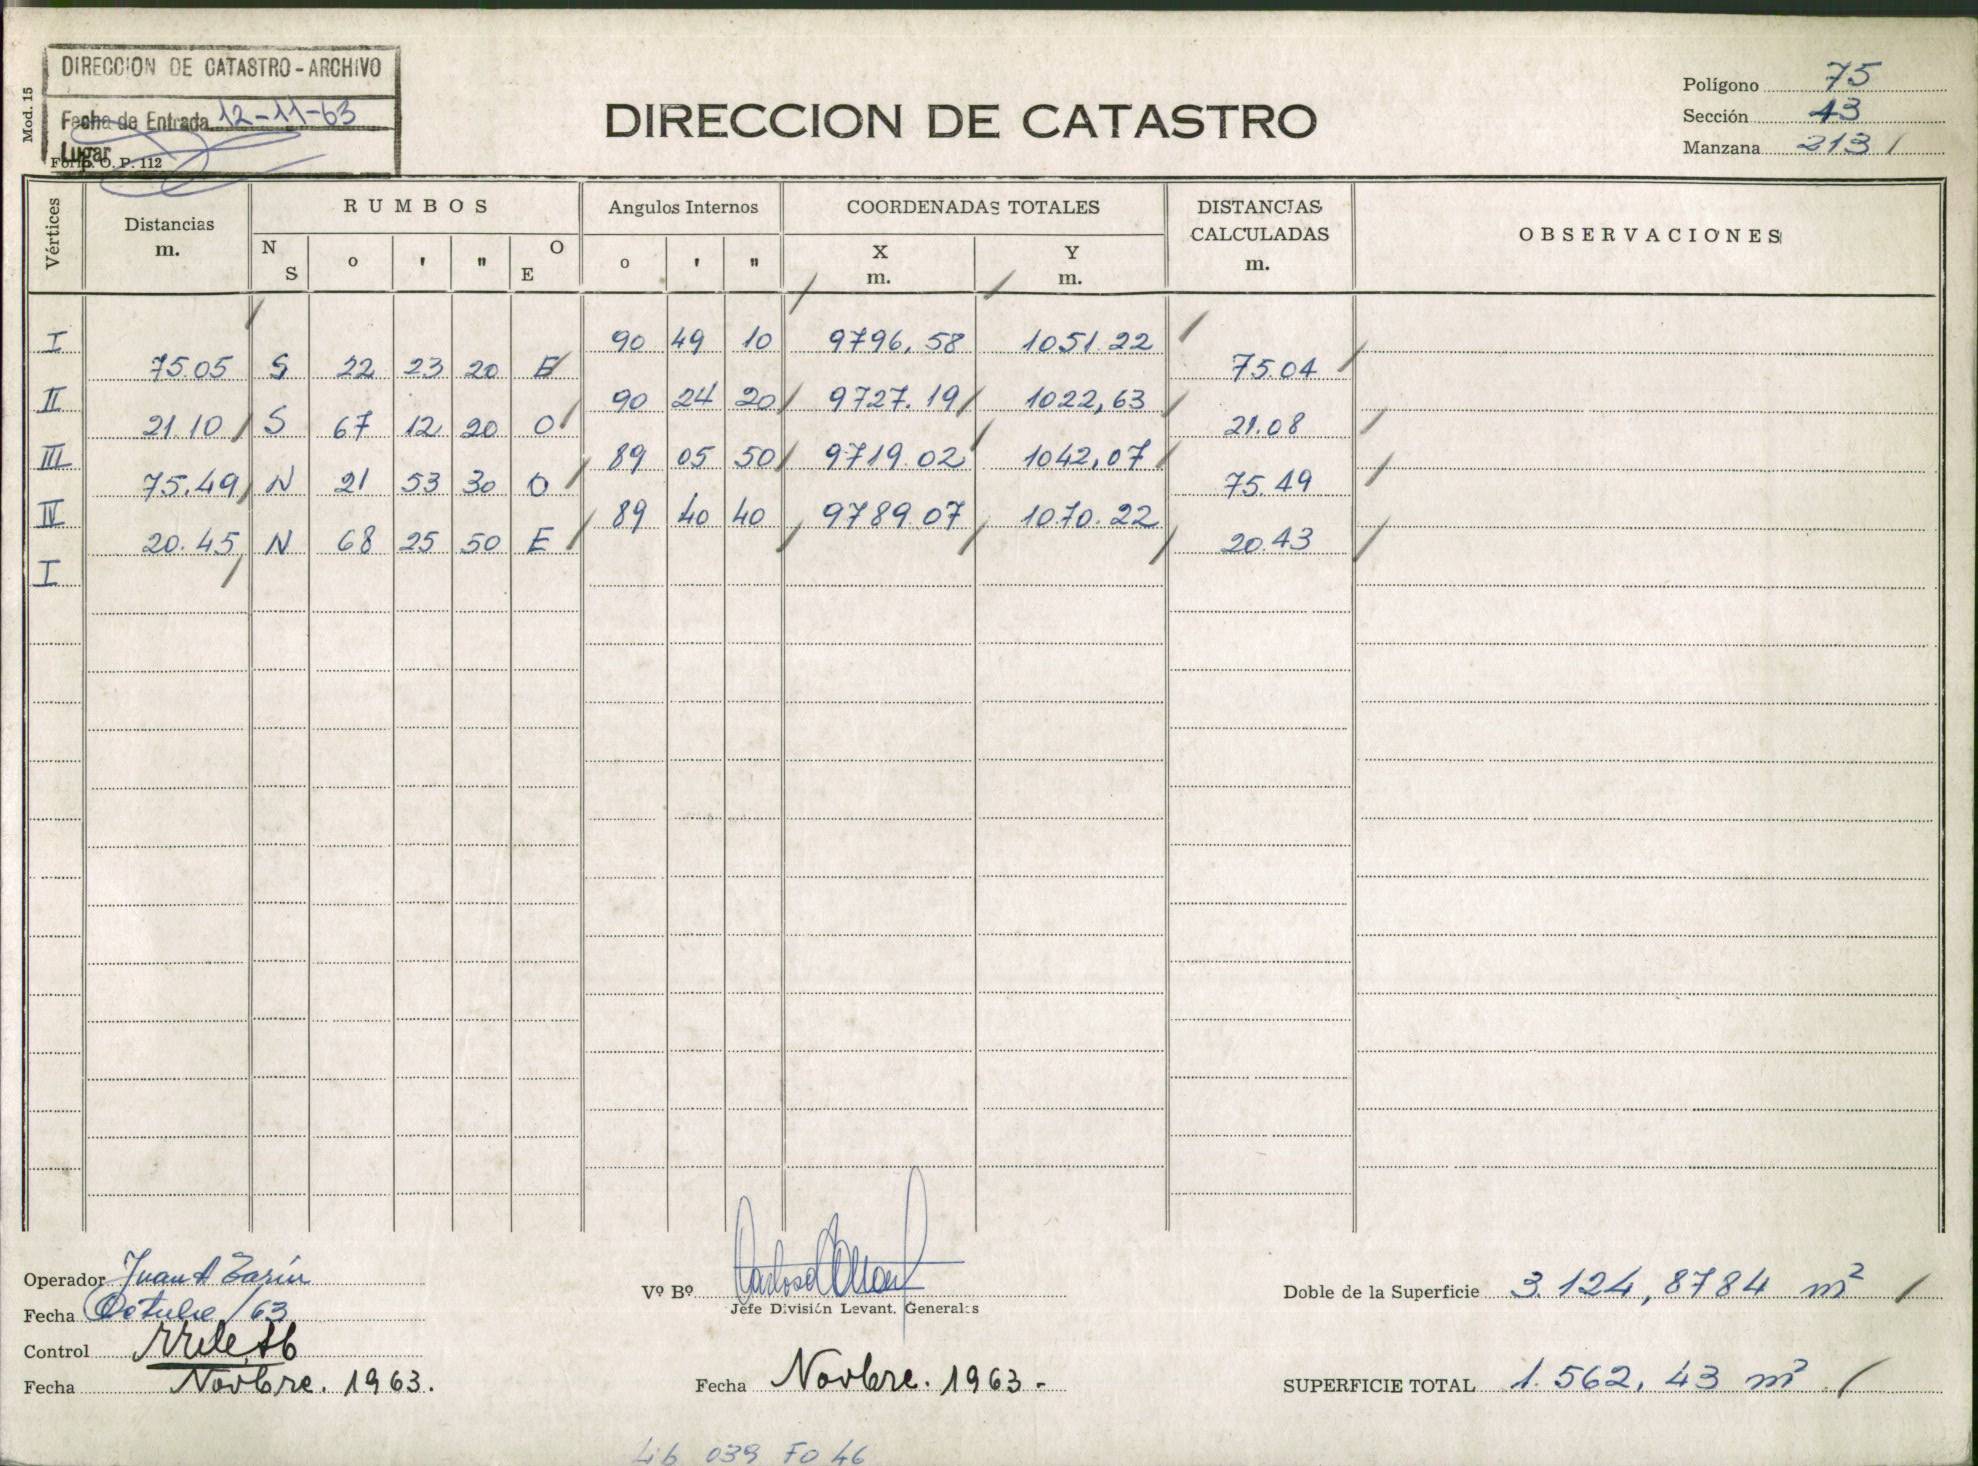 DIRECCION DE CATASTRO - ARCHIVO
Fecha de Entrada 12-11-63
Lugar
Form. O. P. 112
Mod. 15
DIRECCION DE CATASTRO
Polígono 75
Sección 43
Manzana 213
Vértices
Distancias m.
RUMBOS
N S ° ' " O E
Angulos Internos
° ' "
COORDENADAS TOTALES
X m. Y m.
DISTANCIAS CALCULADAS m.
OBSERVACIONES
I 90 49 10 9796,58 1051.22
75.05 S 22 23 20 E 75.04
II 90 24 20 9727.19 1022,63
21.10 S 67 12 20 O 21.08
III 89 05 50 9719.02 1042,07
75.49 N 21 53 30 O 75.49
IV 89 40 40 9789.07 1070.22
20.45 N 68 25 50 E 20.43
I
Operador Juan A
Fecha Octubre/63
Control
Fecha Novbre. 1963.
Vº Bº
Jefe División Levant. Generales
Fecha Novbre. 1963-
Doble de la Superficie 3.124,8784 m²
SUPERFICIE TOTAL 1.562,43 m²
Lib 039 Fo 46